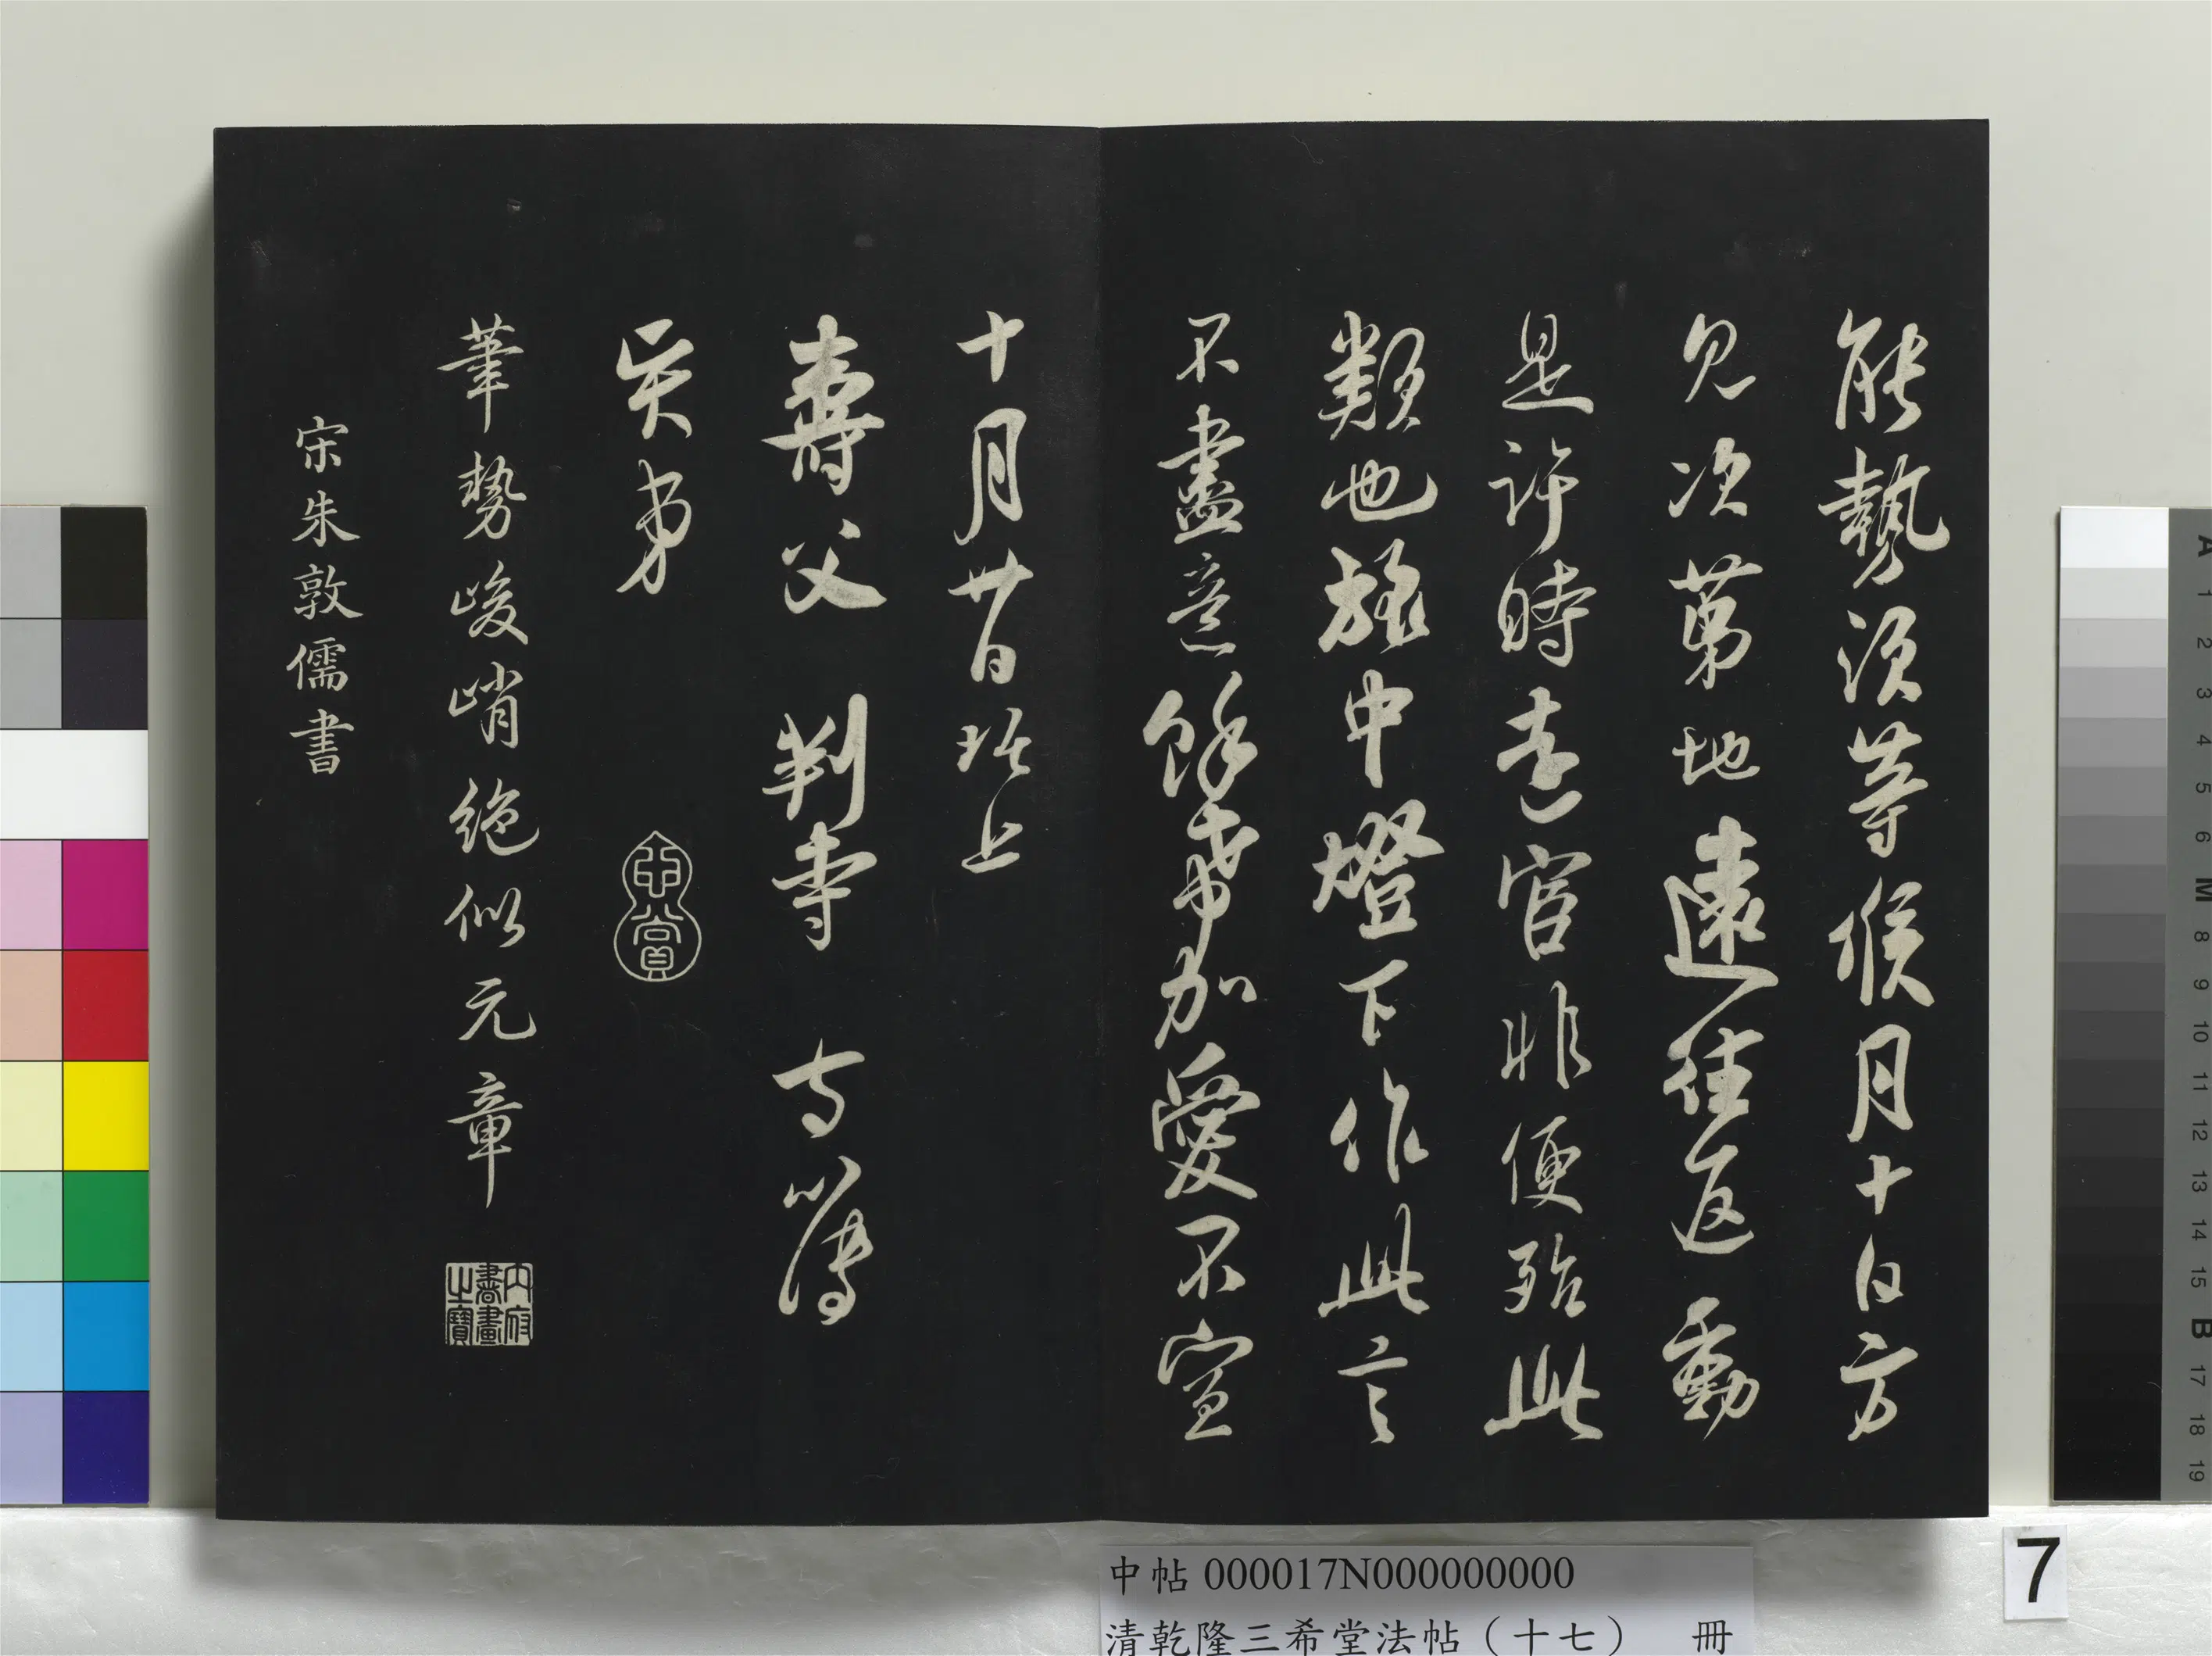 能執須等候月十日方
見次第地遠往返動
是許時遠官非便殆此
類也旅中燈下作此言
不盡意餘希加愛不宣
十月廿日 上
壽父 判寺 寺簿
賢弟
筆勢峻峭絕似元章
內府書畫之寶
宋朱敦儒書
中帖000017N000000000
清乾隆三希堂法帖（十七） 冊
7
A 1 2 3 4 5 6 M 8 9 10 11 12 13 14 15 B 17 18 19